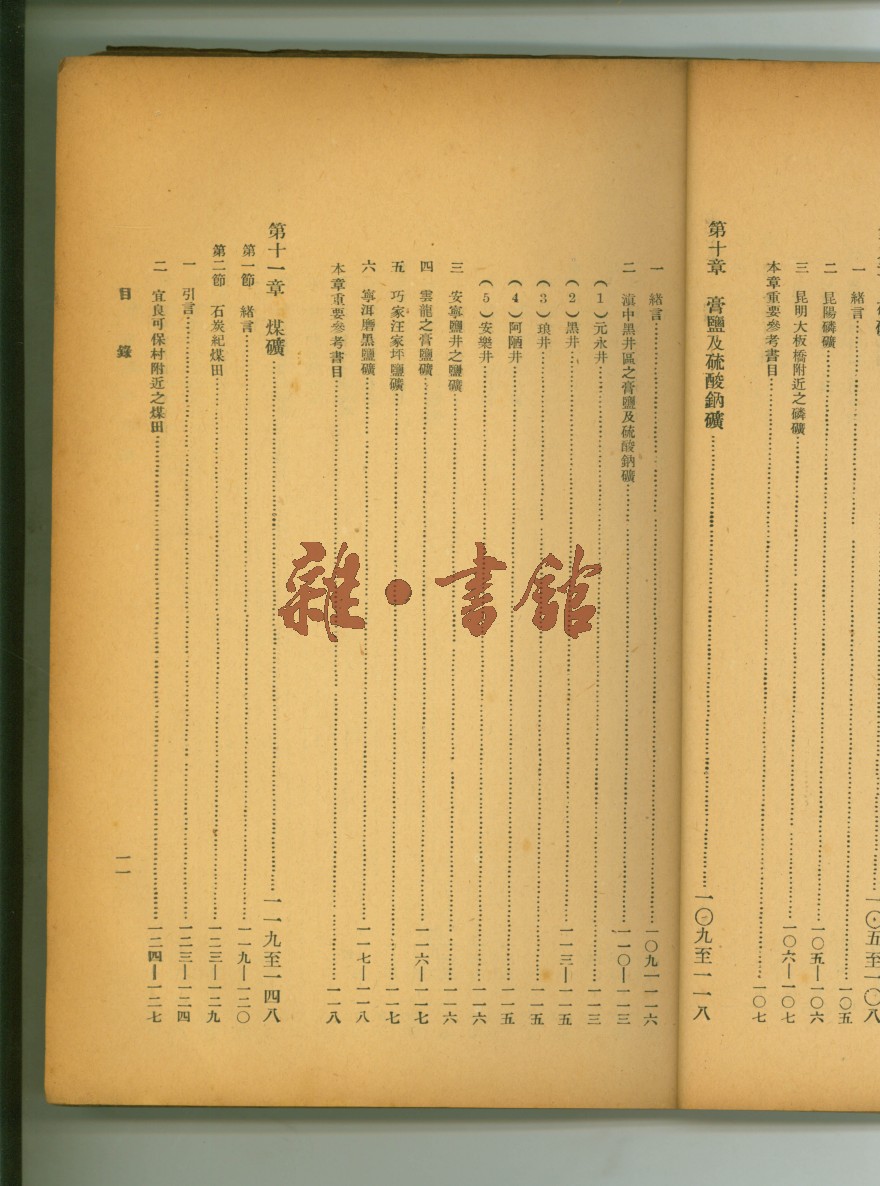 一 緒言……一〇五
二 昆陽磷礦……一〇五—一〇六
三 昆明大板橋附近之磷礦……一〇六—一〇七
本章重要參考書目……一〇七
第十章 膏鹽及硫酸鈉礦……一〇九至一一八
一 緒言……一〇九—一一六
二 滇中黑井區之膏鹽及硫酸鈉礦……一一〇—一一三
(1)元永井……一一三
(2)黑井……一一三—一一五
(3)琅井……一一五
(4)阿陋井……一一五
(5)安樂井……一一六
三 安寧鹽井之鹽礦……一一六
四 雲龍之膏鹽礦……一一六—一一七
五 巧家汪家坪鹽礦……一一七
六 寧洱磨黑鹽礦……一一七—一一八
本章重要參考書目……一一八
第十一章 煤礦……一一九至一四八
第一節 緒言……一一九—一二〇
第二節 石炭紀煤田……一二三—一二九
一 引言……一二三—一二四
二 宜良可保村附近之煤田……一二四—一二七
目錄
一一
雜·書館